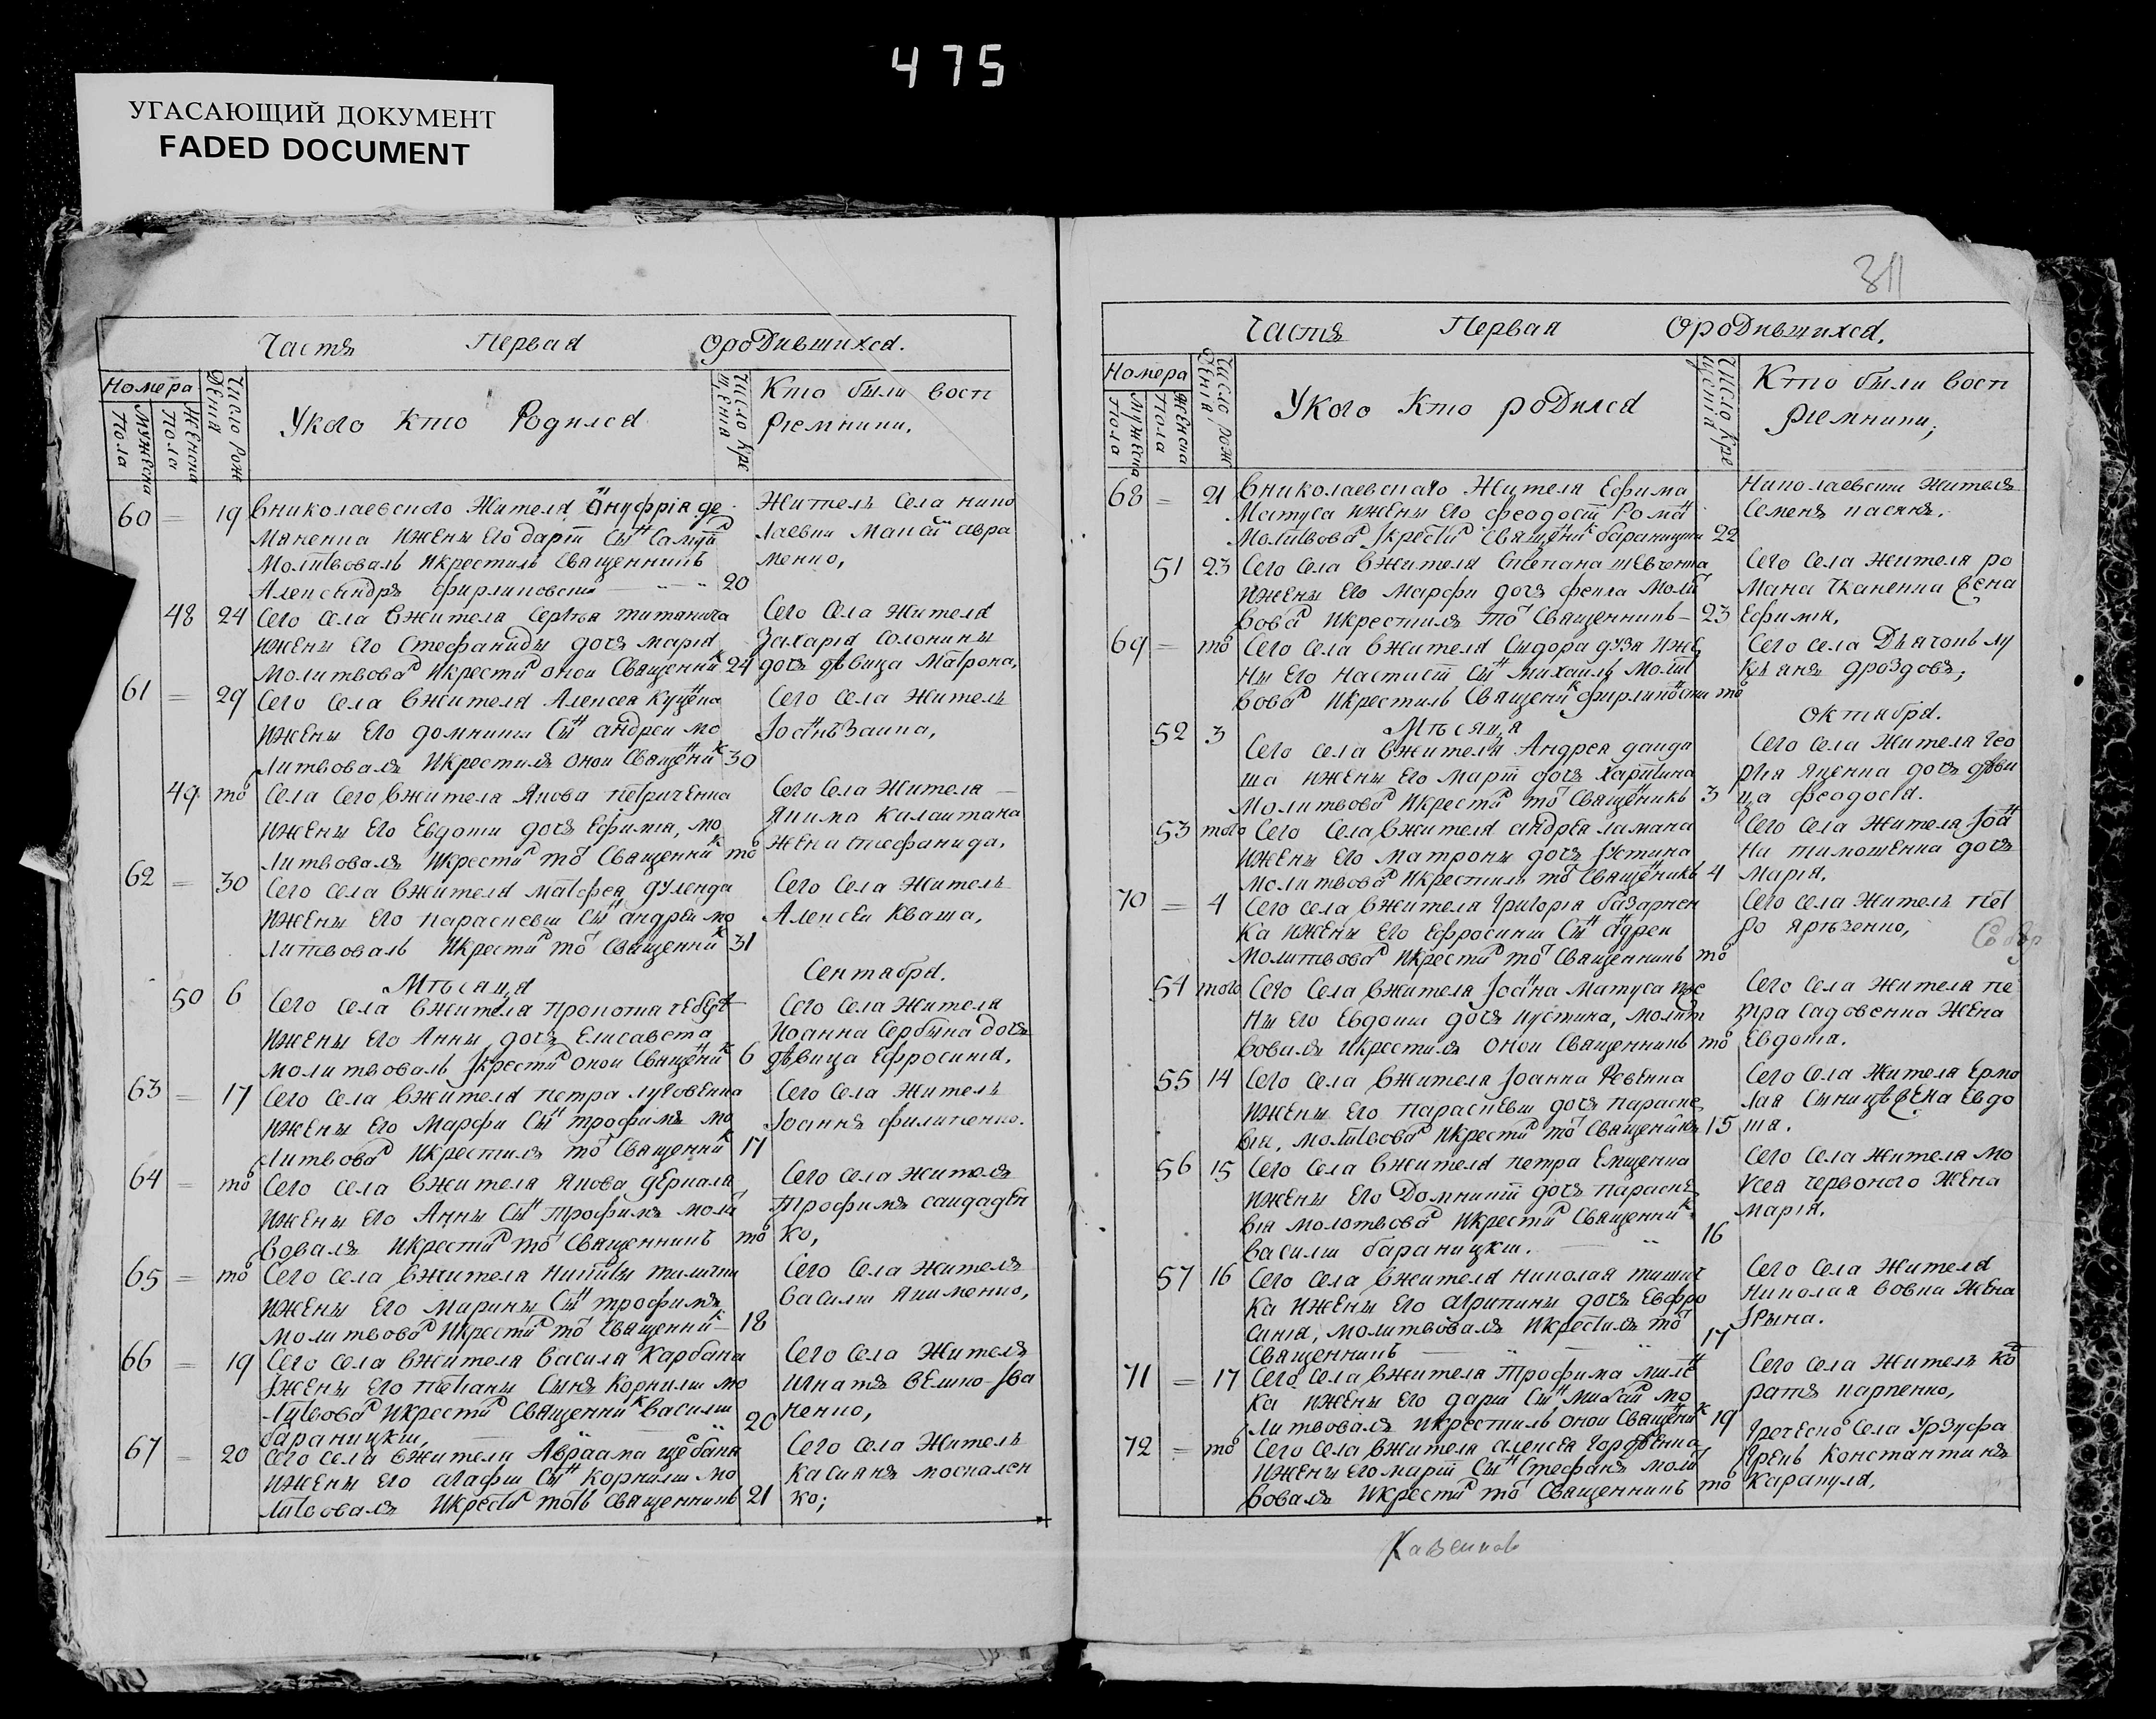 475
УГАСАЮЩИЙ ДОКУМЕНТ
FADED DOCUMENT
Частъ Первая ородившихся.
Номера
Мужеска Пола
Женска Пола
Число рождения
Укого кто Родился
Число крещения
Кто были восприемники,
60 = 19 Вниколаевского Жителя Ануфрія де
маненка Ижены Его дарїи Сын Самуил
Молитвовалъ Икрестилъ Священникъ
Александръ фирликовский 20
Житель Села нико
лаевки Моисей Авра
менко,
48 24 Сего Села Вжителя Сергѣя титаника
ижены Его Стефаниды дочъ марія
Молитвовал Икрестил оной Священник 24
Сего Села Жителя
Захарія Солонины
дочъ дѣвица Матрона,
61 = 29 Сего села Вжителя Алексея Куцена
ижены Его домникии Сын андреи мо
литвовалъ Икрестилъ оной Священик 30
Сего Села Житель
Іоанъ Заика,
49 той Села Сего Вжителя Якова петриченка
ижены Его Евдокии дочъ Ефимія, мо
литвовалъ Икрестил той Священник той
Сего Села Жителя
Якима Калантана
жена стефанида,
62 = 30 Сего Села Вжителя матфея дуленда
ижены Его параскевии Сын андрей мо
литвовалъ Икрестил той Священник 31
Сего Села Житель
Алексей Кваша,
Мѣсяца Сентабря.
50 6 Сего Села Вжителя прокопа
ижены Его Анны дочъ Елисавета
молитвовалъ Ікрестил оной Священик 6
Сего Села Жителя
Иоанна Сербына дочъ
дѣвица Ефросинія,
63 = 17 Сего Села Вжителя петра луговенка
ижены Его Марфи Сын трофимъ мо
литвовал Икрестилъ той Священник 17
Сего Села Житель
Іоаннъ филипенко.
64 = той Сего Села Вжителя Якова деркала
ижены Его Анны Сын трофимъ моли
вовалъ Икрестил той Священникъ той
Сего Села Жителъ
Трофимъ сандаден
ко,
65 = той Сего Села Вжителя никиты
ижены Его Марины Сын трофимъ
молитвовал Икрестил той Священник 18
Сего Села Жителъ
Василий Якименко,
66 = 19 Сего Села Вжителя Василя Карбана
Іжены Его Тетіаны Сынъ Корнилий мо
литвовал Икрестил Священник Василий
бараницкий, 20
Сего Села Жителъ
Игнатъ Велико-Ива
ненко,
67 = 20 Сего Села Вжителя Авраама щебана
ижены Его агафии Сын Корнилий мо
литвовалъ Икрестил тоть Священникъ 21
Сего Села Житель
Касиянъ москален
ко;
311
Частъ Первая ородившихся.
Номера
Мужеска Пола
Женска Пола
Число рождения,
Укого Кто родился
Число крещения
Кто были восприемники;
68 = 21 Вниколаевскаго Жителя Ефима
Матуса ижены Его феодосїи Роман
Молитвовал Ікрестил Священик бараницкий 22
Николаевки жителъ
Семенъ пасека.
51 23 Сего Села Вжителя Степана шевченка
ижены Его Марфи дочъ фекла моли
вовал Икрестилъ той Священникъ 23
Сего Села Жителя ро
мана Ткаченка жена
Ефимія.
69 = той Сего Села Вжителя Сидора дуза иже
ны Его Настасїи Сын михаилъ молит
вовал Икрестилъ Священик фирликовский той
Сего Села Дьячокъ лу
кьянъ дроздовъ;
Мѣсяца октабря.
52 3 Сего Села Вжителя Андрея данда
ша ижены Его Марїи дочъ харитина
Молитвовал Икрестил той Священикъ 3
Сего Села Жителя гео
ргія Яценка дочъ дѣви
ца феодосія.
53 того Сего Села Вжителя андрея ламана
ижены Его матроны дочъ Іустина
молитвовал Икрестилъ той Священикъ 4
Сего Села Жителя Іоан
на тимошенка дочъ
Марія.
70 = 4 Сего Села Вжителя Григорія базарнен
ка ижены Его Ефросинии Сын андреи
Молитвовал Икрестил той Священникъ той
Сего Села Житель пет
ро Ярѣзенко,
54 того Сего Села Вжителя Іоанна Матуса иже
ны Его Евдокии дочъ иустина, молит
вовалъ Икрестилъ оной Священникъ той
Сего Села Жителя пе
тра Садовенка Жена
Евдокія.
55 14 Сего Села Вжителя Іоанна Ревенка
ижены Его параскевии дочъ параске
вія, молитвовал Икрестил той Священикъ 15
Сего Села Жителя Ермо
лая Жена Евдо
кія.
56 15 Сего Села Вжителя петра Ещенка
ижены Его Домникїи дочъ параске
вія молотвовал Икрестил Священник
Василий бараницкий. 16
Сего Села Жителя Мо
исея Червоного Жена
Марія.
57 16 Сего Села Вжителя николая
ка ижены Его агрипины дочъ Евфро
синія, молитвовалъ Икрестилъ той
Священникъ 17
Сего Села Жителя
Николая Вовка Жена
Ірына.
71 = 17 Сего Села Вжителя Трофима милен
ка ижены Его дарии Сын михаил мо
литвовалъ Икрестилъ оной Священик 19
Сего Села Житель Кон
ратъ карпенко,
72 = той Сего Села Вжителя алексея гордѣенка
ижены Его марїи Сын Стефанъ моли
вовалъ Икрестил той Священникъ той
Греческо Села Урзуфа
Грекъ Константинъ
Карапула,